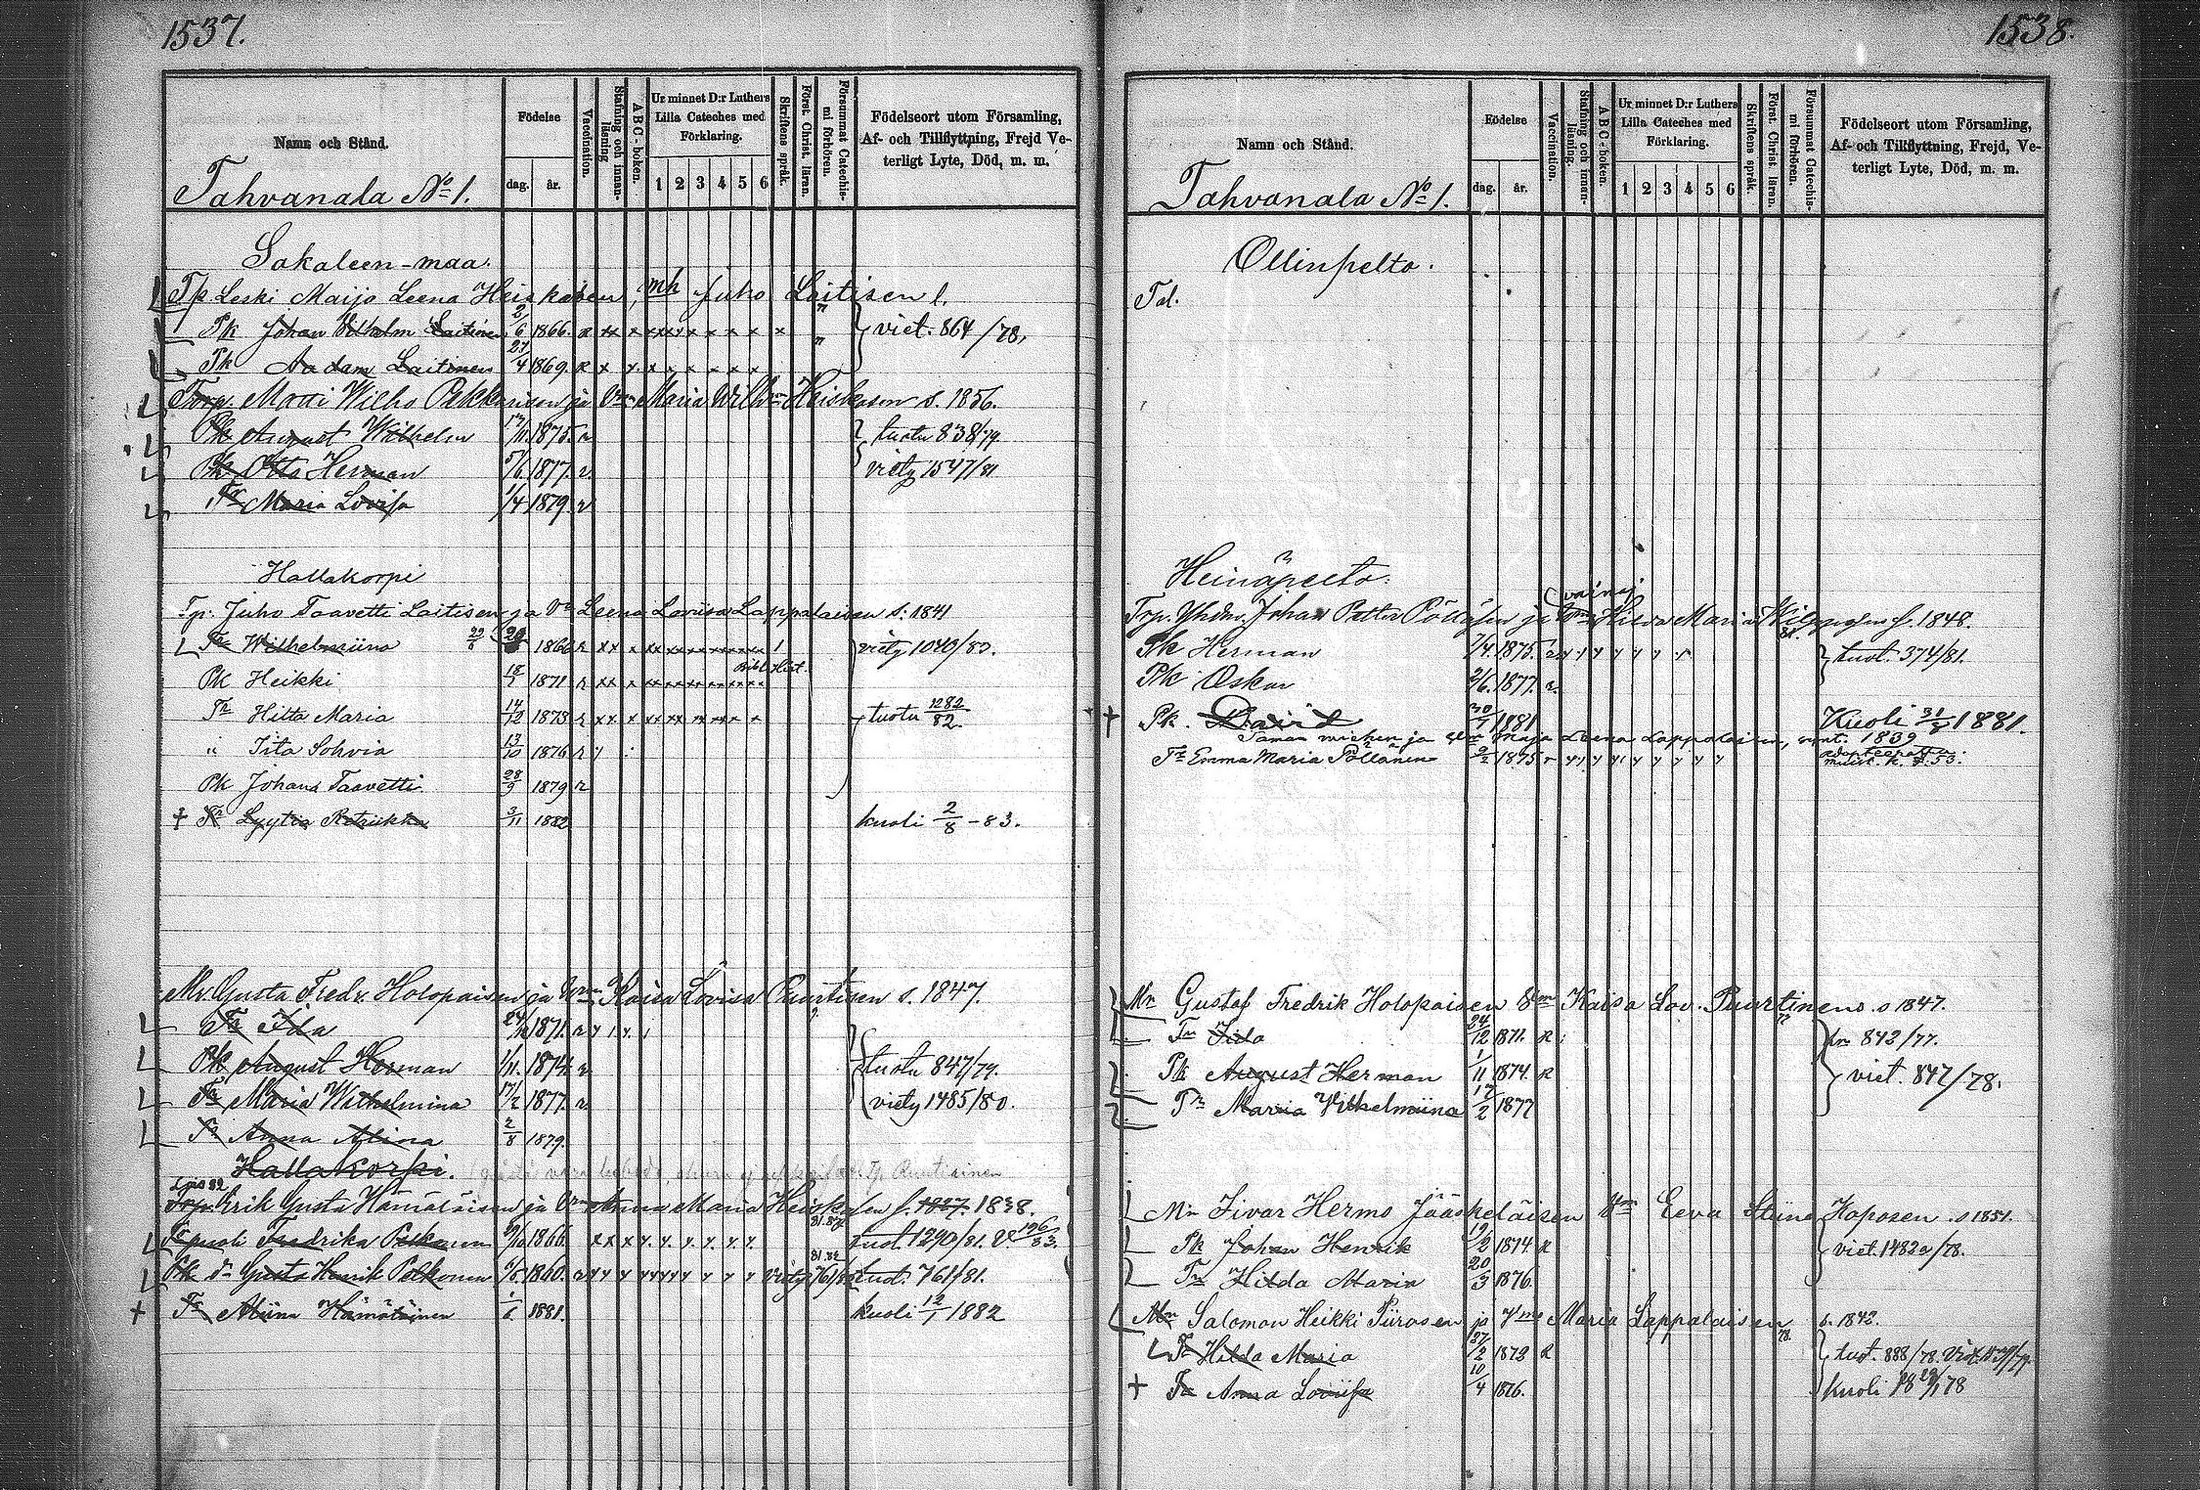 1537.
Namn och Stånd.
Födelse
dag. år.
Vaccination.
Stafning och innan-läsning
ABC-boken.
Ur minnet D:r Luthers Lilla Cateches med Förklaring.
1 2 3 4 5 6
Skriftens språk.
Först. Christ. läran.
Försummat Catechis-mi förhören.
Födelseort utom Församling,
Af- och Tillflyttning, Frejd Ve-
terligt Lyte, Död, m. m.
Tahvanala No 1.
Sakaleen-maa.
Tp. Leski Maija Leena Heiskanen, mh Juho Laitisen l.
Pk Johan Vilhelm Laitinen 2/6 1866. viet. 864/78.
Pk Aadam Laitinen 27/4 1869.
Torp. Matti Wilho Pekkarisen ja Vmn Maria Wilh. Heiskasen s. 1856.
Pk August Wilhelm 17/11 1875. tuotu 838/79.
Pk Otto Herman 5/6 1877. viety 1547/81
Tr Maria Lovisa 1/4 1879.
Hallakorpi
Tp. Juho Taavetti Laitisen ja Vn Leena Loviisa Lappalaisen s. 1841
Tr Wilhelmiina 1866 viety 1040/83.
Pk Heikki 18/7 1871 Bibl. Hist.
Tr Hilta Maria 14/12 1873 tuotu 1282/82
" Iita Sohvia 13/10 1876
Pk Johana Taavetti 28/9 1879
+ Tr Lyytia Retriikka 3/11 1882 kuoli 2/8 -83.
Mr. Gusta Fredr. Holopaisen ja Vmn Kaisa Lovisa Puurtisen s. 1847.
Tr Ida 24/12 1871.
Pk August Herman 1/11. 1874. tuotu 847/79.
Tr Maria Wilhelmina 17/2 1877. viety 1485/80.
Tr Anna Alina 2/8 1879.
Hallakorpi.
Torp. Erik Gusta Hämäläisen ja Vmn Anna Maria Heiskasen s. 1827. 1838.
Fredrika Pelkonen 1866. tuot. 1290/81. V. 196/83.
Pk Gusta Henrik Pelkonen 1860. viety 761/8 tuot. 761/81.
+ Tr Miina Hämäläinen 1/6 1881. kuoli 12/1 1882
1538.
Namn och Stånd.
Födelse
dag. år.
Vaccination.
Stafning och innan-läsning.
ABC-boken.
Ur minnet D:r Luthers Lilla Cateches med Förklaring.
1 2 3 4 5 6
Skriftens språk.
Först. Christ. läran.
Försummat Catechis-mi förhören.
Födelseort utom Församling,
Af- och Tillflyttning, Frejd, Ve-
terligt Lyte, Död, m. m.
Tahvanala No 1.
Ollinpelto.
Tal.
Heinäpelto.
Johan Petter Pöllösen ja Vmn Hilda Maria s. 1848.
Pk Herman 7/4. 1875. tuot. 374/81.
Pk Oskar 2/6. 1877.
+ Pk. David 30/7 1881 Kuoli 31/8 1881.
Saman miehen ja Maja Leena Lappalaisen, synt. 1839
Tr Emma Maria Pöllänen 9/2 1875
Mr Gustaf Fredrik Holopaisen Vmn Kaisa Lov. Puurtinens s 1847.
Tr Iida 24/12 1871. tu 842/77.
Pk August Herman 1/11 1874. viet. 847/78.
Tr Maria Vilhelmiina 17/2 1877
Mr Iivar Hermo Jääskeläisen Vmn Eeva Stiina Haposen s 1851.
Pk Johan Henrik 19/2 1874. viet. 1482a/78.
Tr Hilda Maria 20/3 1876.
Mr Salomon Heikki Piirosen ja Vmn Maria Lappalaisen s. 1842.
Tr Hilda Maria 27/2 1873 tuot. 888/78.
+ Tr Anna Loviisa 10/4 1876. kuoli